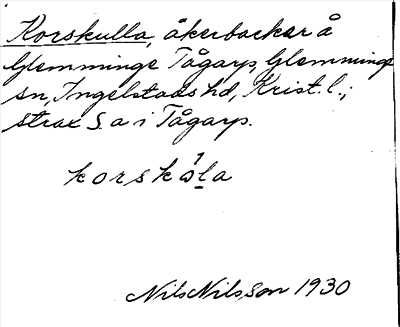 Korskulla, åkerbackar å
Glemminge Tågarp, Glemminge
sn, Ingelstads hd, Krist. l.;
strax S. a i Tågarp.
korskala
Nils Nilsson 1930